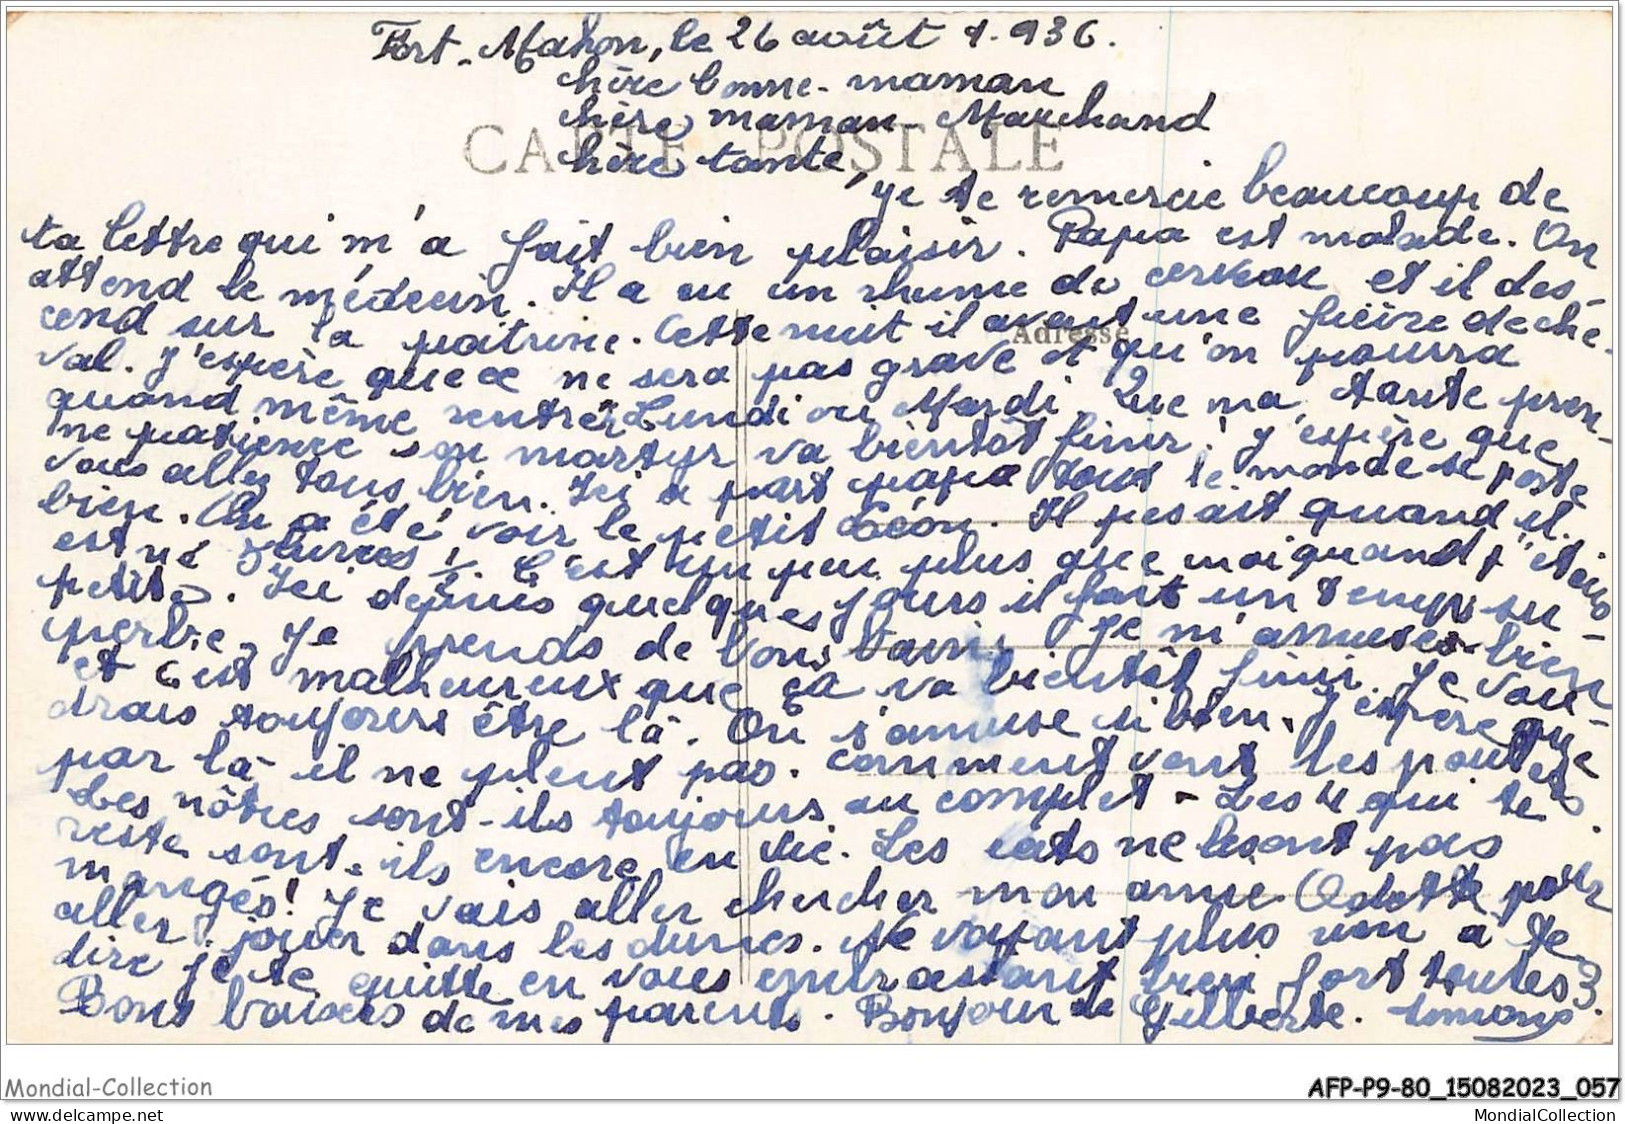 Fort-Mahon, le 26 août 1.936.
chère bonne-maman
chère maman-Marchand
CARTE POSTALE
chère tante,
Je te remercie beaucoup de
ta lettre qui m'a fait bien plaisir. Papa est malade. On
attend le médecin. Il a eu un rhume de cerveau et il des-
cend sur la poitrine. Cette nuit il avait une fièvre de che-
Adresse
val. J'espère que ce ne sera pas grave et qu'on pourra
quand même rentrer Lundi ou Mardi. Que ma tante pren-
ne patience son martyr va bientôt finir! J'espère que
vous allez tous bien. Ici a part papa tout le monde se porte
bien. On a été voir le petit Léon. Il pesait quand il
est né 3 livres 1/2. C'est un peu plus que moi quand j'étais
petite. Ici depuis quelques jours il fait un temps su-
perbe. Je prends de bons bains. Je m'amuse bien
et c'est malheureux que ça va bientôt finir. Je vou-
drais toujours être là. On s'amuse si bien. J'espère que
par là il ne pleut pas. Comment vont les poulets.
Les nôtres sont-ils toujours au complet - Les 4 qui te
reste sont-ils encore en vie. Les rats ne les ont pas
mangés! Je vais aller chercher mon amie Odette pour
aller jouer dans les dunes. Ne voyant plus rien à te
dire je te quitte en vous embrassant bien fort toutes 3
Bons baisers de mes parents. Bonjour de Gilberte. Simone.
Mondial-Collection
AFP-P9-80_15082023_057
MondialCollection